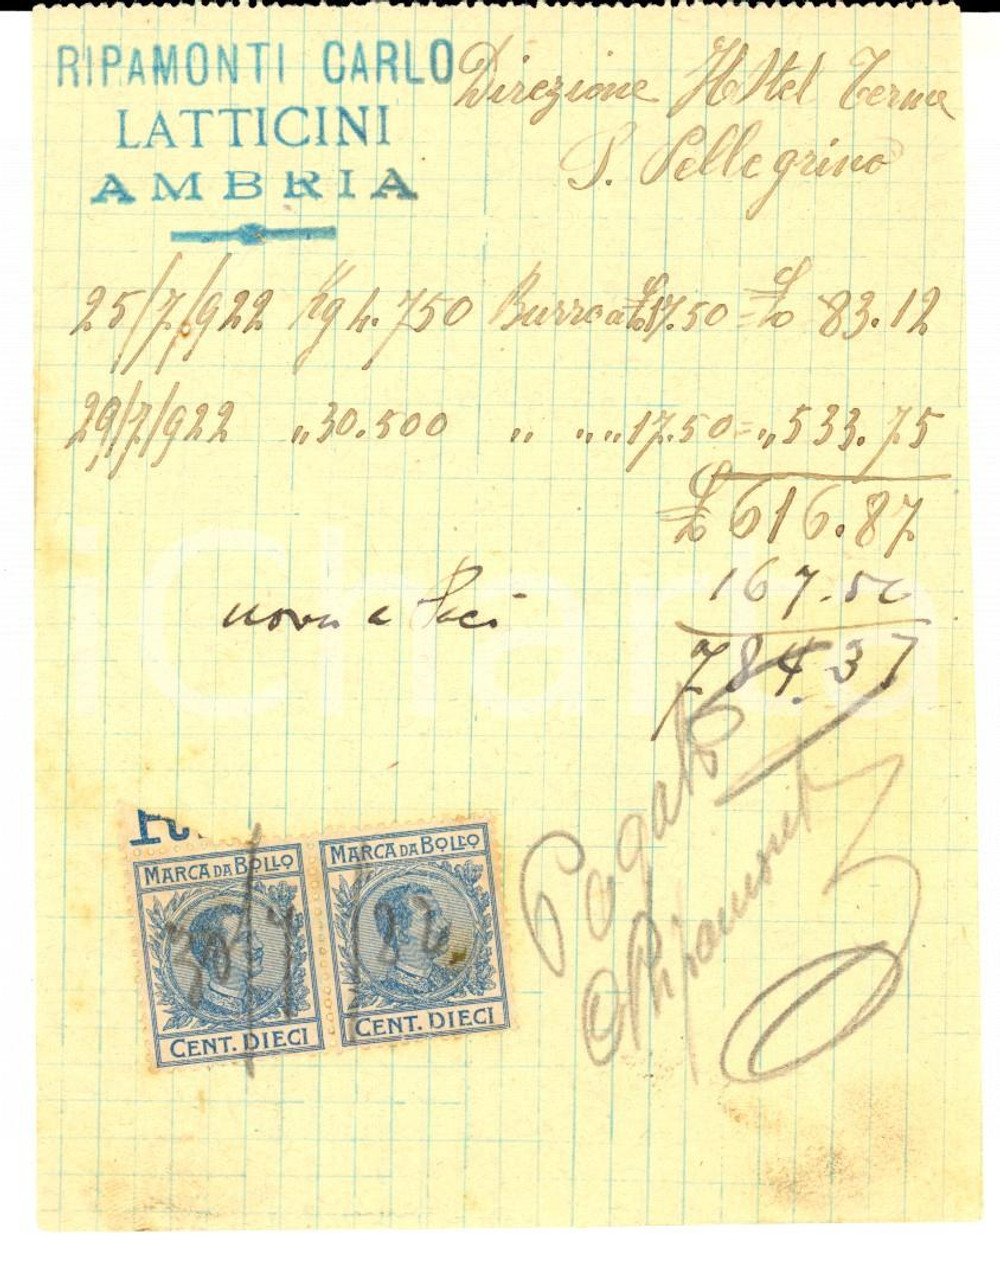 RIPAMONTI CARLO
LATTICINI
AMBRIA
Direzione Hôtel Terme
S. Pellegrino
25/7/922 Kg 4.750 Burro a £ 17.50 = £ 83.12
29/7/922 „ 30.500 „ „ „ 17.50 = „ 533.75
£ 616.87
167.50
uova e
784.37
Pagato
C Ripamonti
MARCA DA BOLLO
CENT. DIECI
MARCA DA BOLLO
CENT. DIECI
30/7/22
iCharta